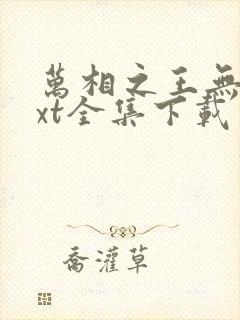 萬相之王無
xt全集下載
喬灌草